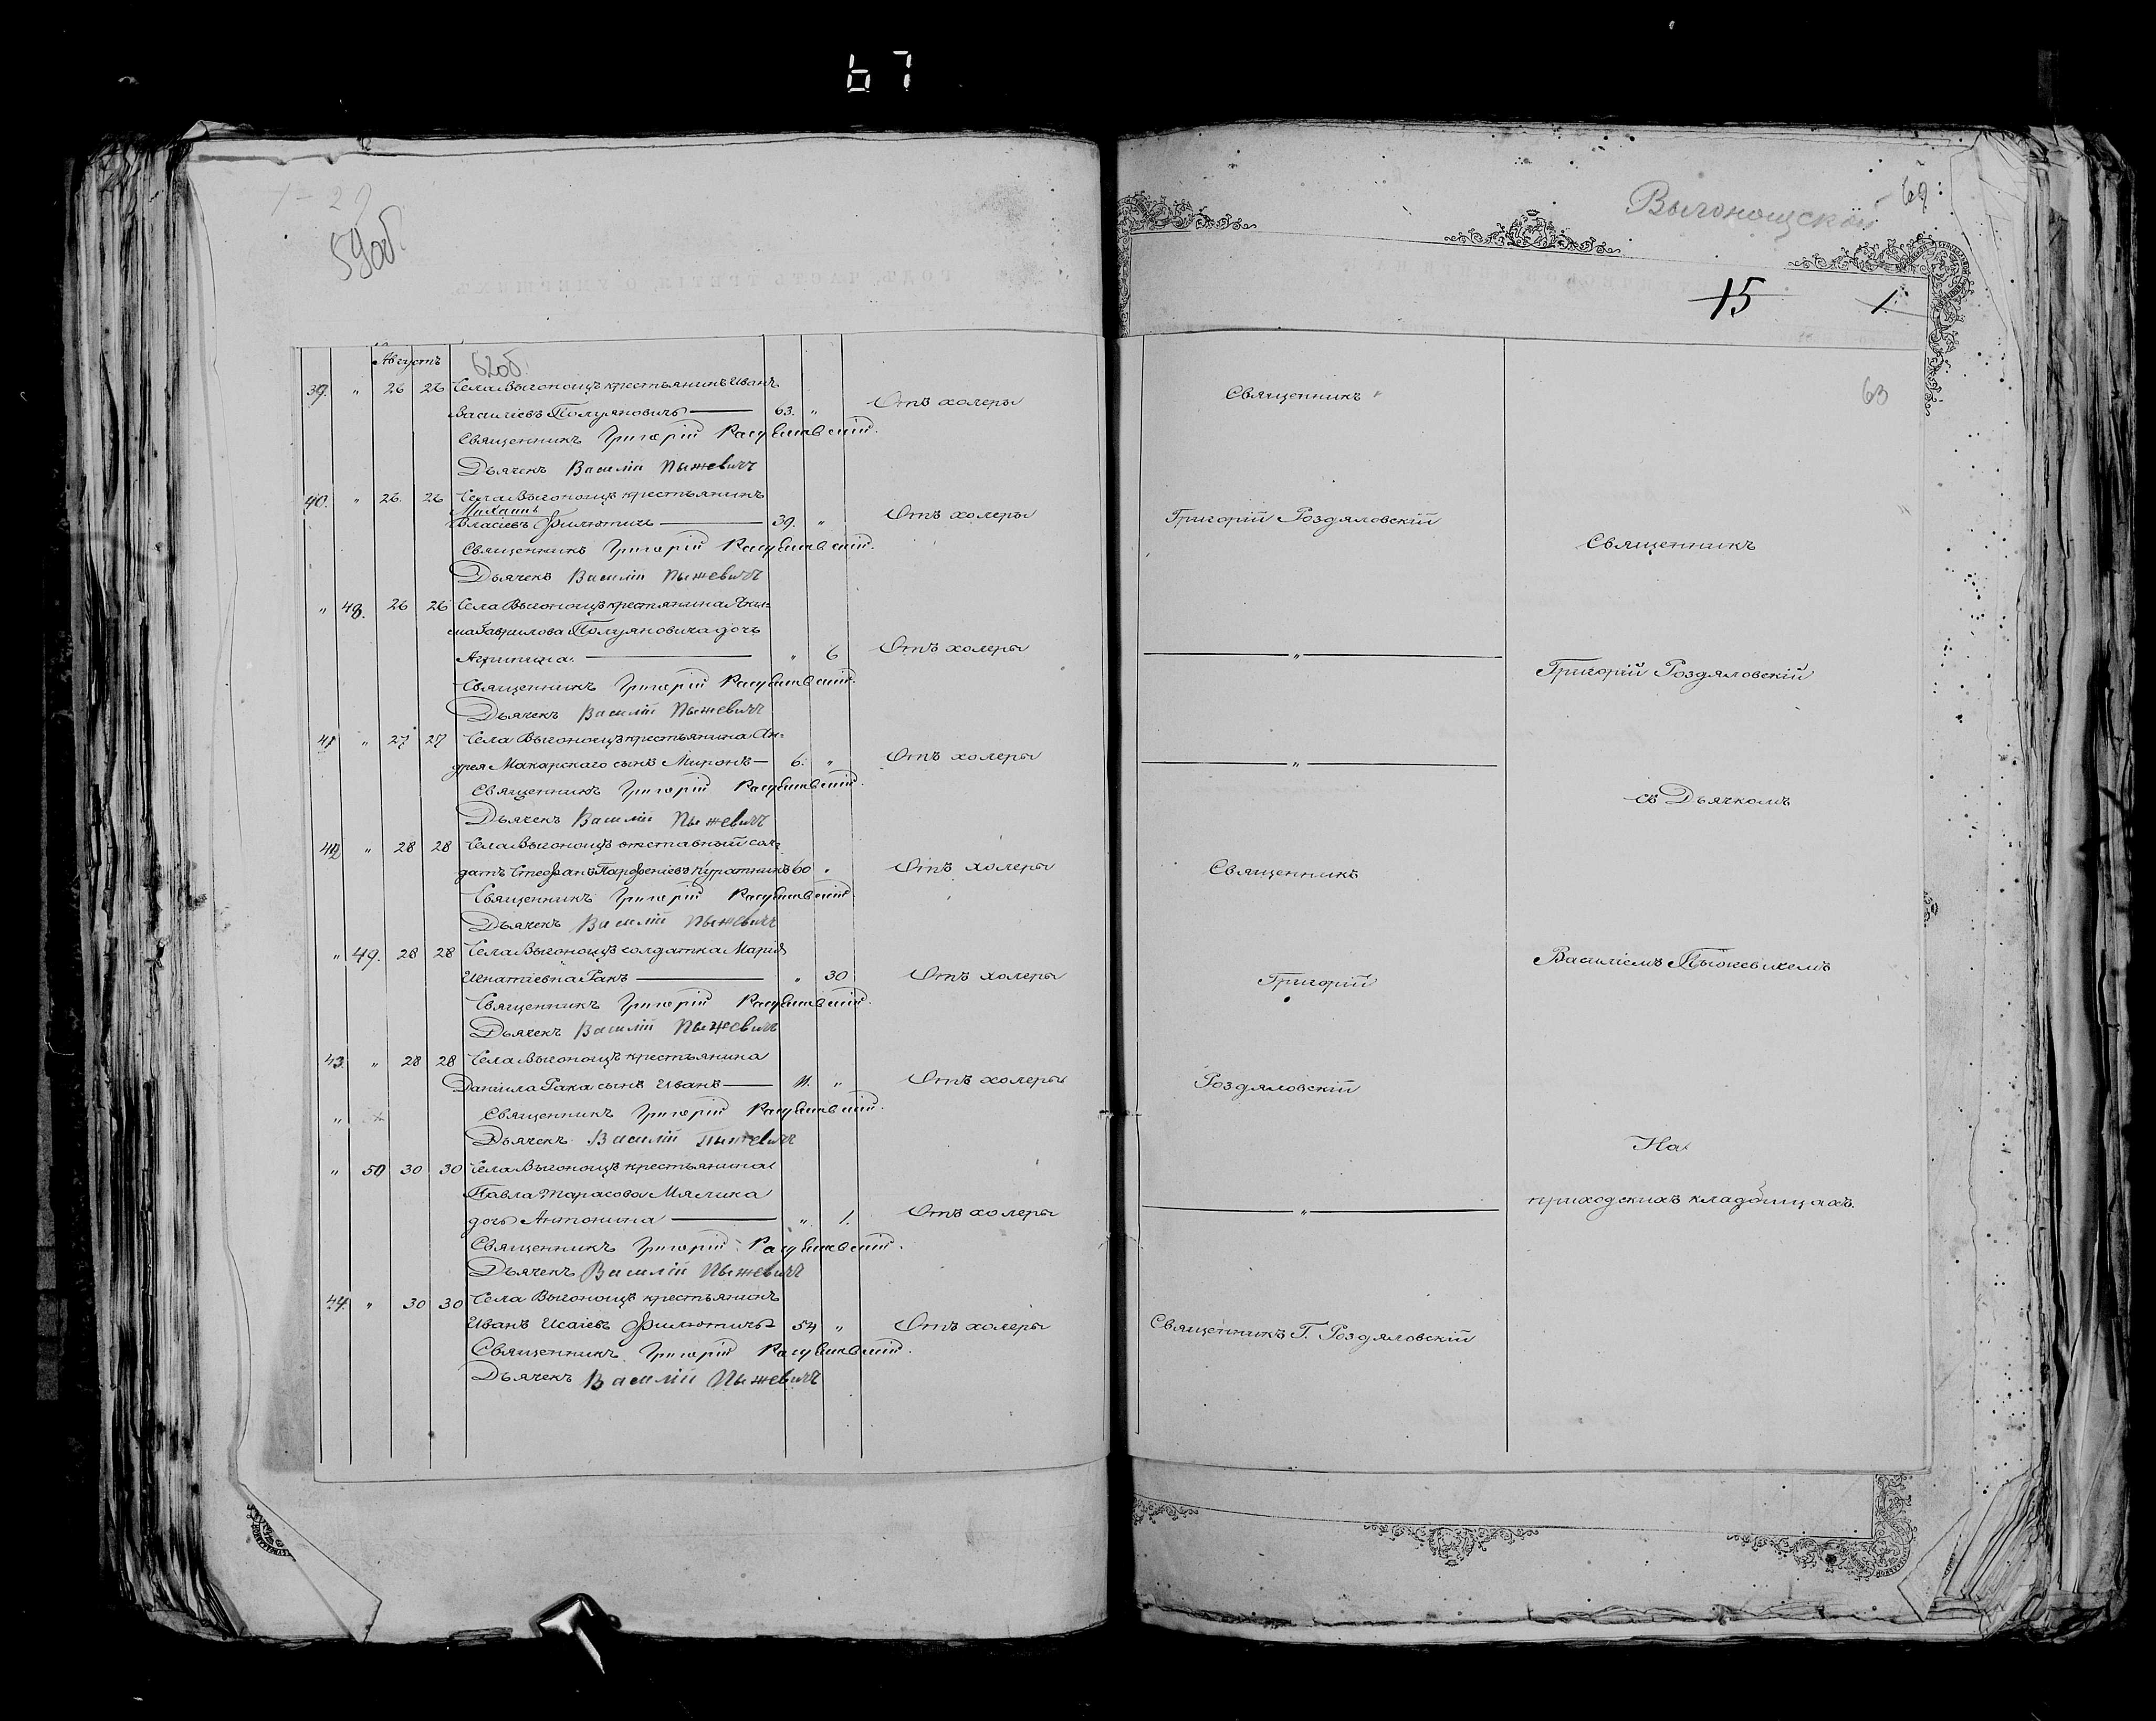 67
59об.
Выгонощской
69
15
1
Августъ
62об.
63
39. " 26 26 Села Выгонощъ крестьянинъ Иванъ
Василіевъ Полуяновичъ — 63. " Отъ холеры
Священникъ
Священникъ Григорій Роздяловскій.
Дьячекъ Василій Пыжевичъ
40. " 26. 26 Села Выгонощъ крестьянинъ
Михаилъ
Власіевъ Филютичъ — 39. " Отъ холеры
Григорій Роздяловскій
Священникъ
Священникъ Григорій Роздяловскій.
Дьячекъ Василій Пыжевичъ
" 48. 26 26 Села Выгонощъ крестьянина Яки-
ма Гаврилова Полуяновича дочь
Агрипина. — " 6 Отъ холеры
— " —
Григорій Роздяловскій
Священникъ Григорій Роздяловскій.
Дьячекъ Василій Пыжевичъ
41 " 27 27 Села Выгонощъ крестьянина Ан-
дрея Макарскаго сынъ Миронъ — 6. " Отъ холеры
— " —
съ Дьячкомъ
Священникъ Григорій Роздяловскій.
Дьячекъ Василій Пыжевичъ
42 " 28 28 Села Выгонощъ отставный сол-
датъ Стефанъ Парфеніевъ Куратникъ 60 " Отъ холеры
Священникъ
Священникъ Григорій Роздяловскій.
Дьячекъ Василій Пыжевичъ
" 49. 28 28 Села Выгонощъ солдатка Марія
Игнатіевна Ракъ — " 30 Отъ холеры
Григорій
Василіемъ Пыжевичемъ
Священникъ Григорій Роздяловскій.
Дьячекъ Василій Пыжевичъ
43. " 28 28 Села Выгонощъ крестьянина
Даніила Рака сынъ Иванъ — 11. " Отъ холеры
Роздяловскій
Священникъ Григорій Роздяловскій.
Дьячекъ Василій Пыжевичъ
На
" 50 30 30 Села Выгонощъ крестьянина
Павла Тарасова Мялика
дочь Антонина — " 1. Отъ холеры
— " —
приходскихъ кладбищахъ.
Священникъ Григорій Роздяловскій.
Дьячекъ Василій Пыжевичъ
44. " 30 30 Села Выгонощъ крестьянинъ
Иванъ Исаіевъ Филютичъ 54 " Отъ холеры
Священникъ Г. Роздяловскій
Священникъ Григорій Роздяловскій.
Дьячекъ Василій Пыжевичъ